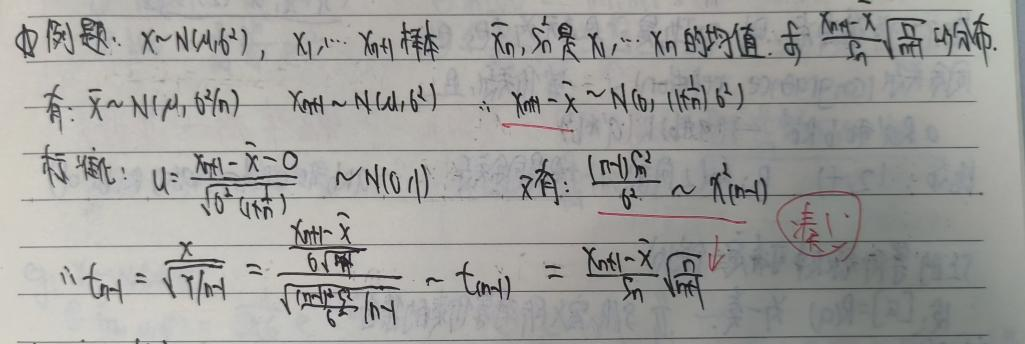 例题: X~N(μ,σ²), X₁,… Xₙ₊₁ 样本 X̄ₙ, Sₙ² 是 X₁,… Xₙ 的均值. 求 (Xₙ₊₁-X̄)/Sₙ √(n/(n+1)) 的分布.
有: X̄~N(μ,σ²/n) Xₙ₊₁~N(μ,σ²) ∴ Xₙ₊₁-X̄~N(0,(1+1/n)σ²)
标准化: U=(Xₙ₊₁-X̄-0)/√(σ²(1+1/n)) ~N(0,1) 又有: (n-1)Sₙ²/σ² ~ χ²(n-1)
∴ tₙ₋₁ = X/√(Y/n-1) = ((Xₙ₊₁-X̄)/(σ√))/√((n-1)Sₙ²/σ²/n-1) ~ t(n-1) = (Xₙ₊₁-X̄)/Sₙ √(n/(n+1))